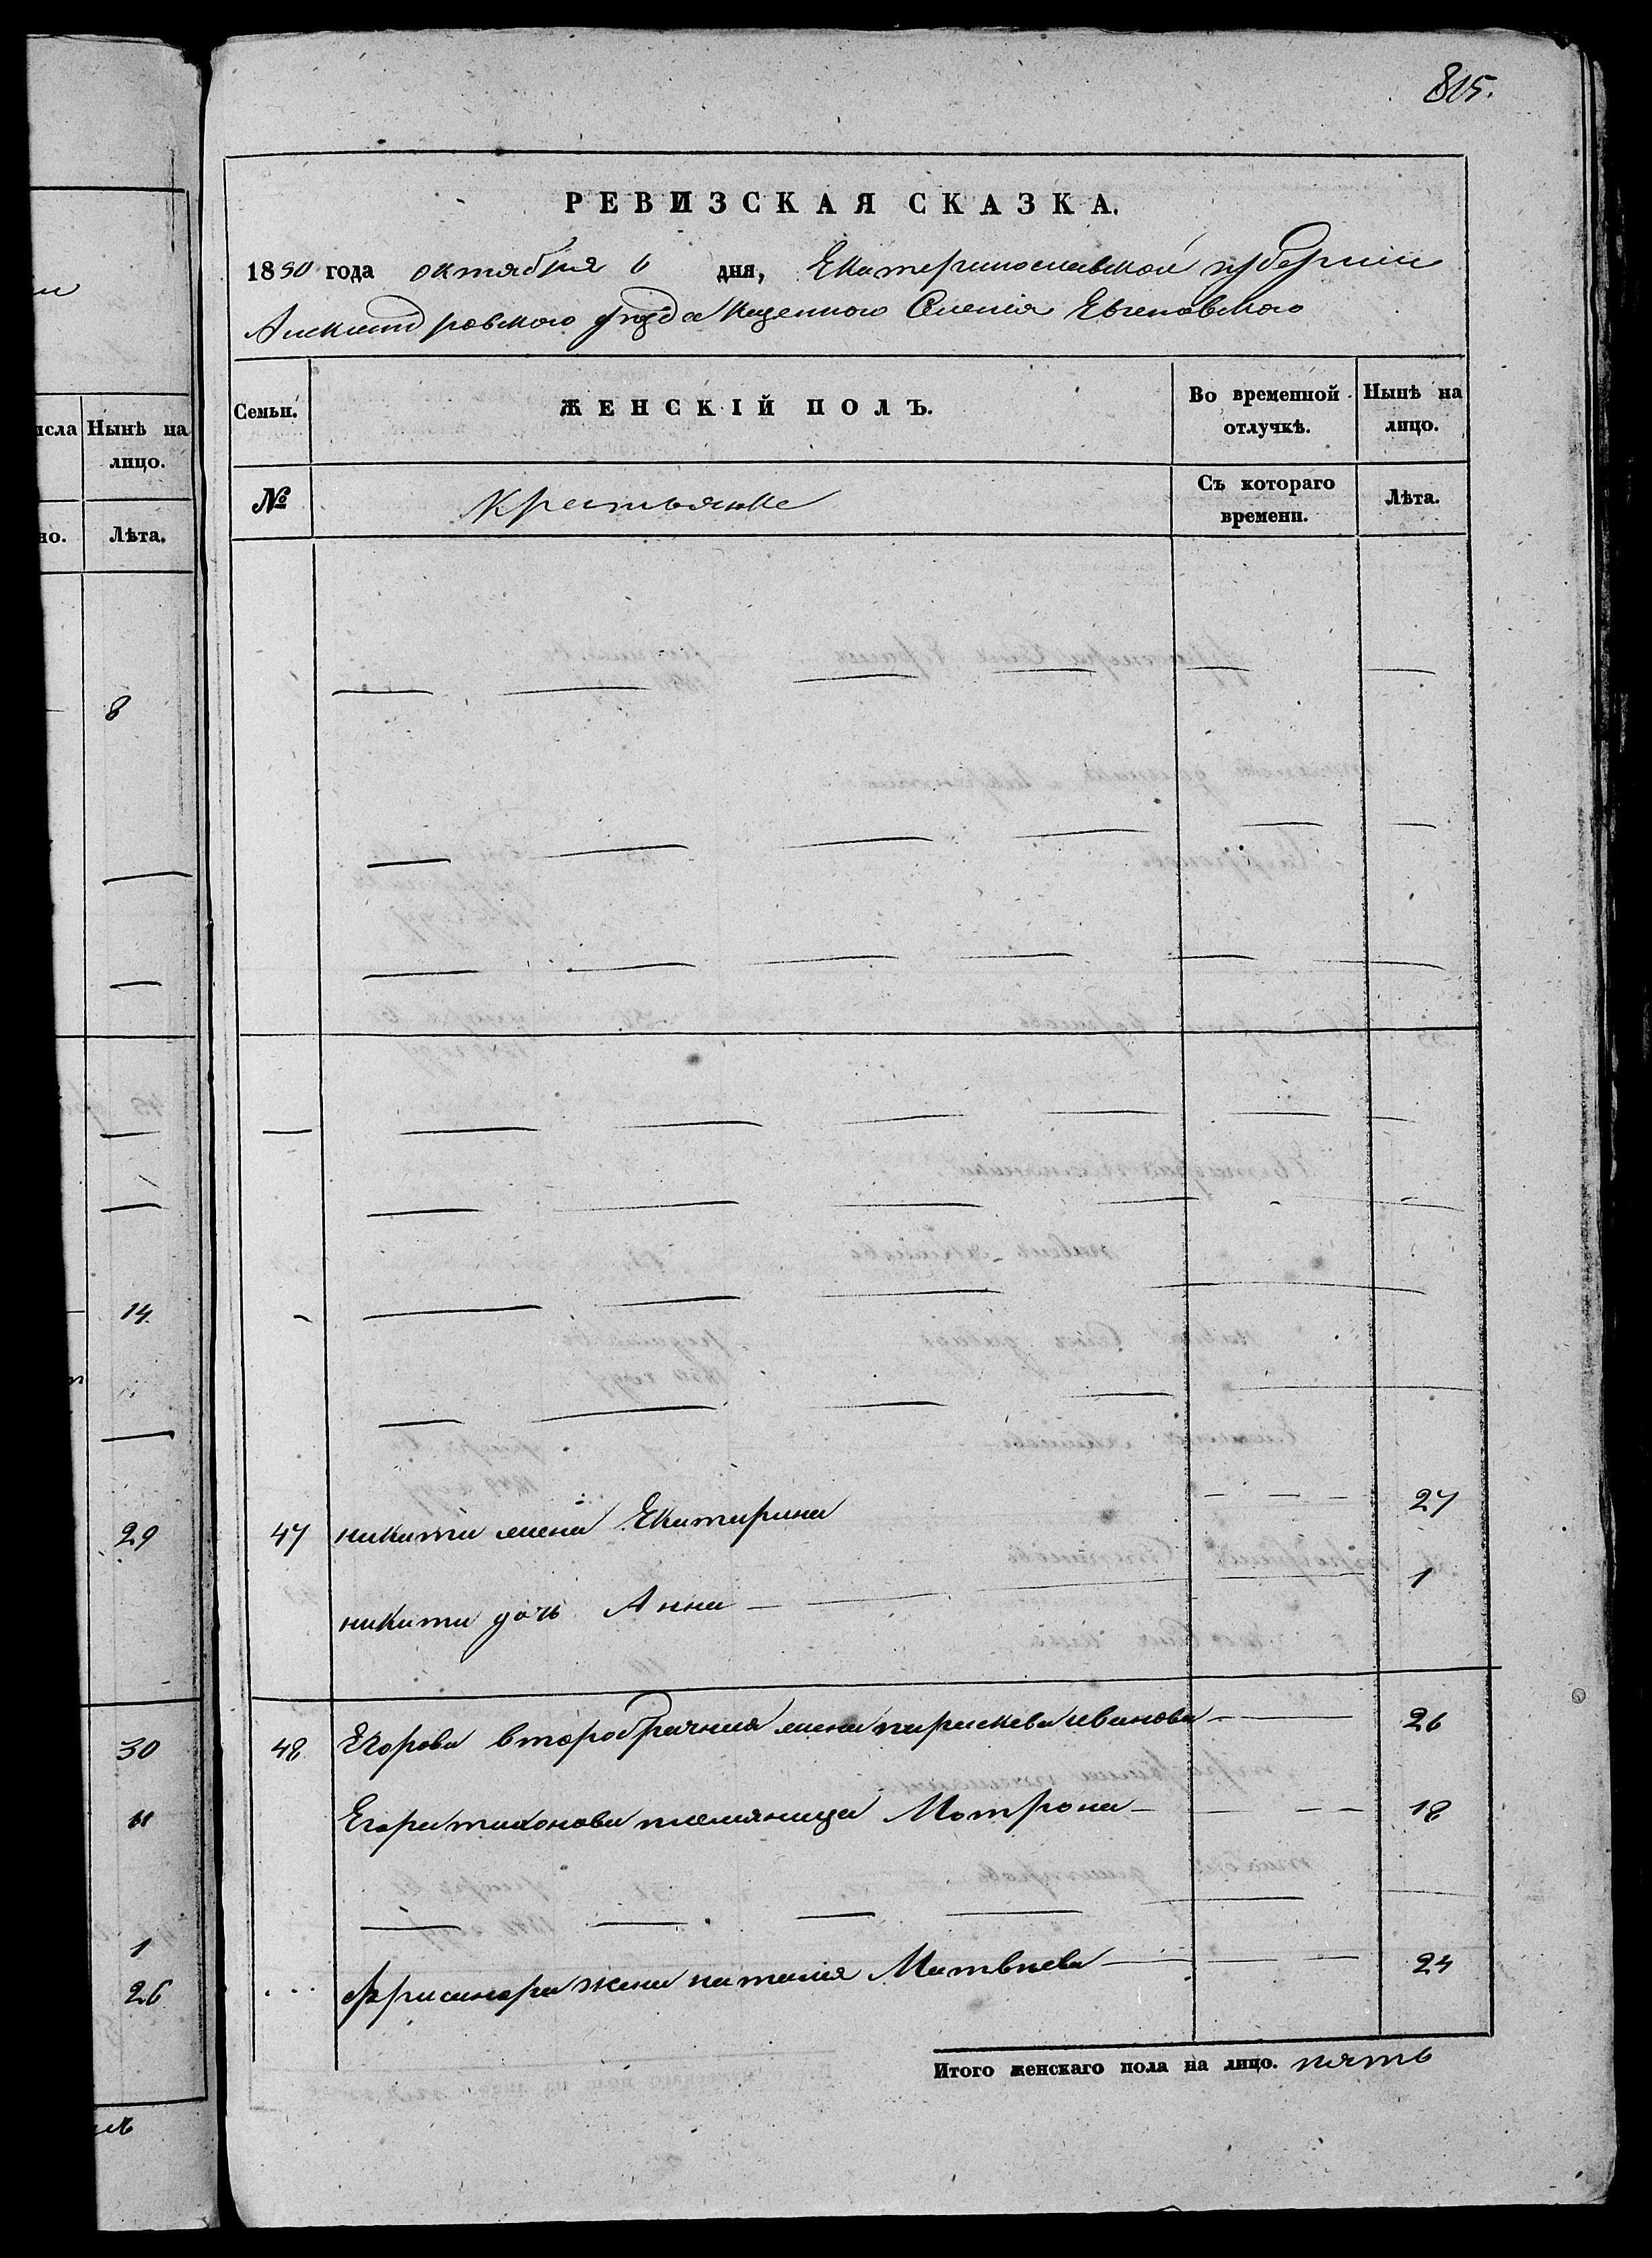 815.
РЕВИЗСКАЯ СКАЗКА.
1850 года октября 6 дня, Екатеринославской губернии
Александровского уезда казенного Селения Евгеновского
Семьи. ЖЕНСКІЙ ПОЛЪ. Во временной отлучкѣ. Нынѣ на лицо.
№ крестьянке Съ котораго времени. Лѣта.
исла Нынѣ на лицо.
но. Лѣта.
8
14
29
30
11
1
26
47 никити жена Екатирина 27
никити дочь Анна 1
48 Егорова второбрачния жена параскева иванова 26
Егора тихонова племяница Мотрона 18
жена наталия Матвпева 24
Итого женскаго пола на лицо. пять